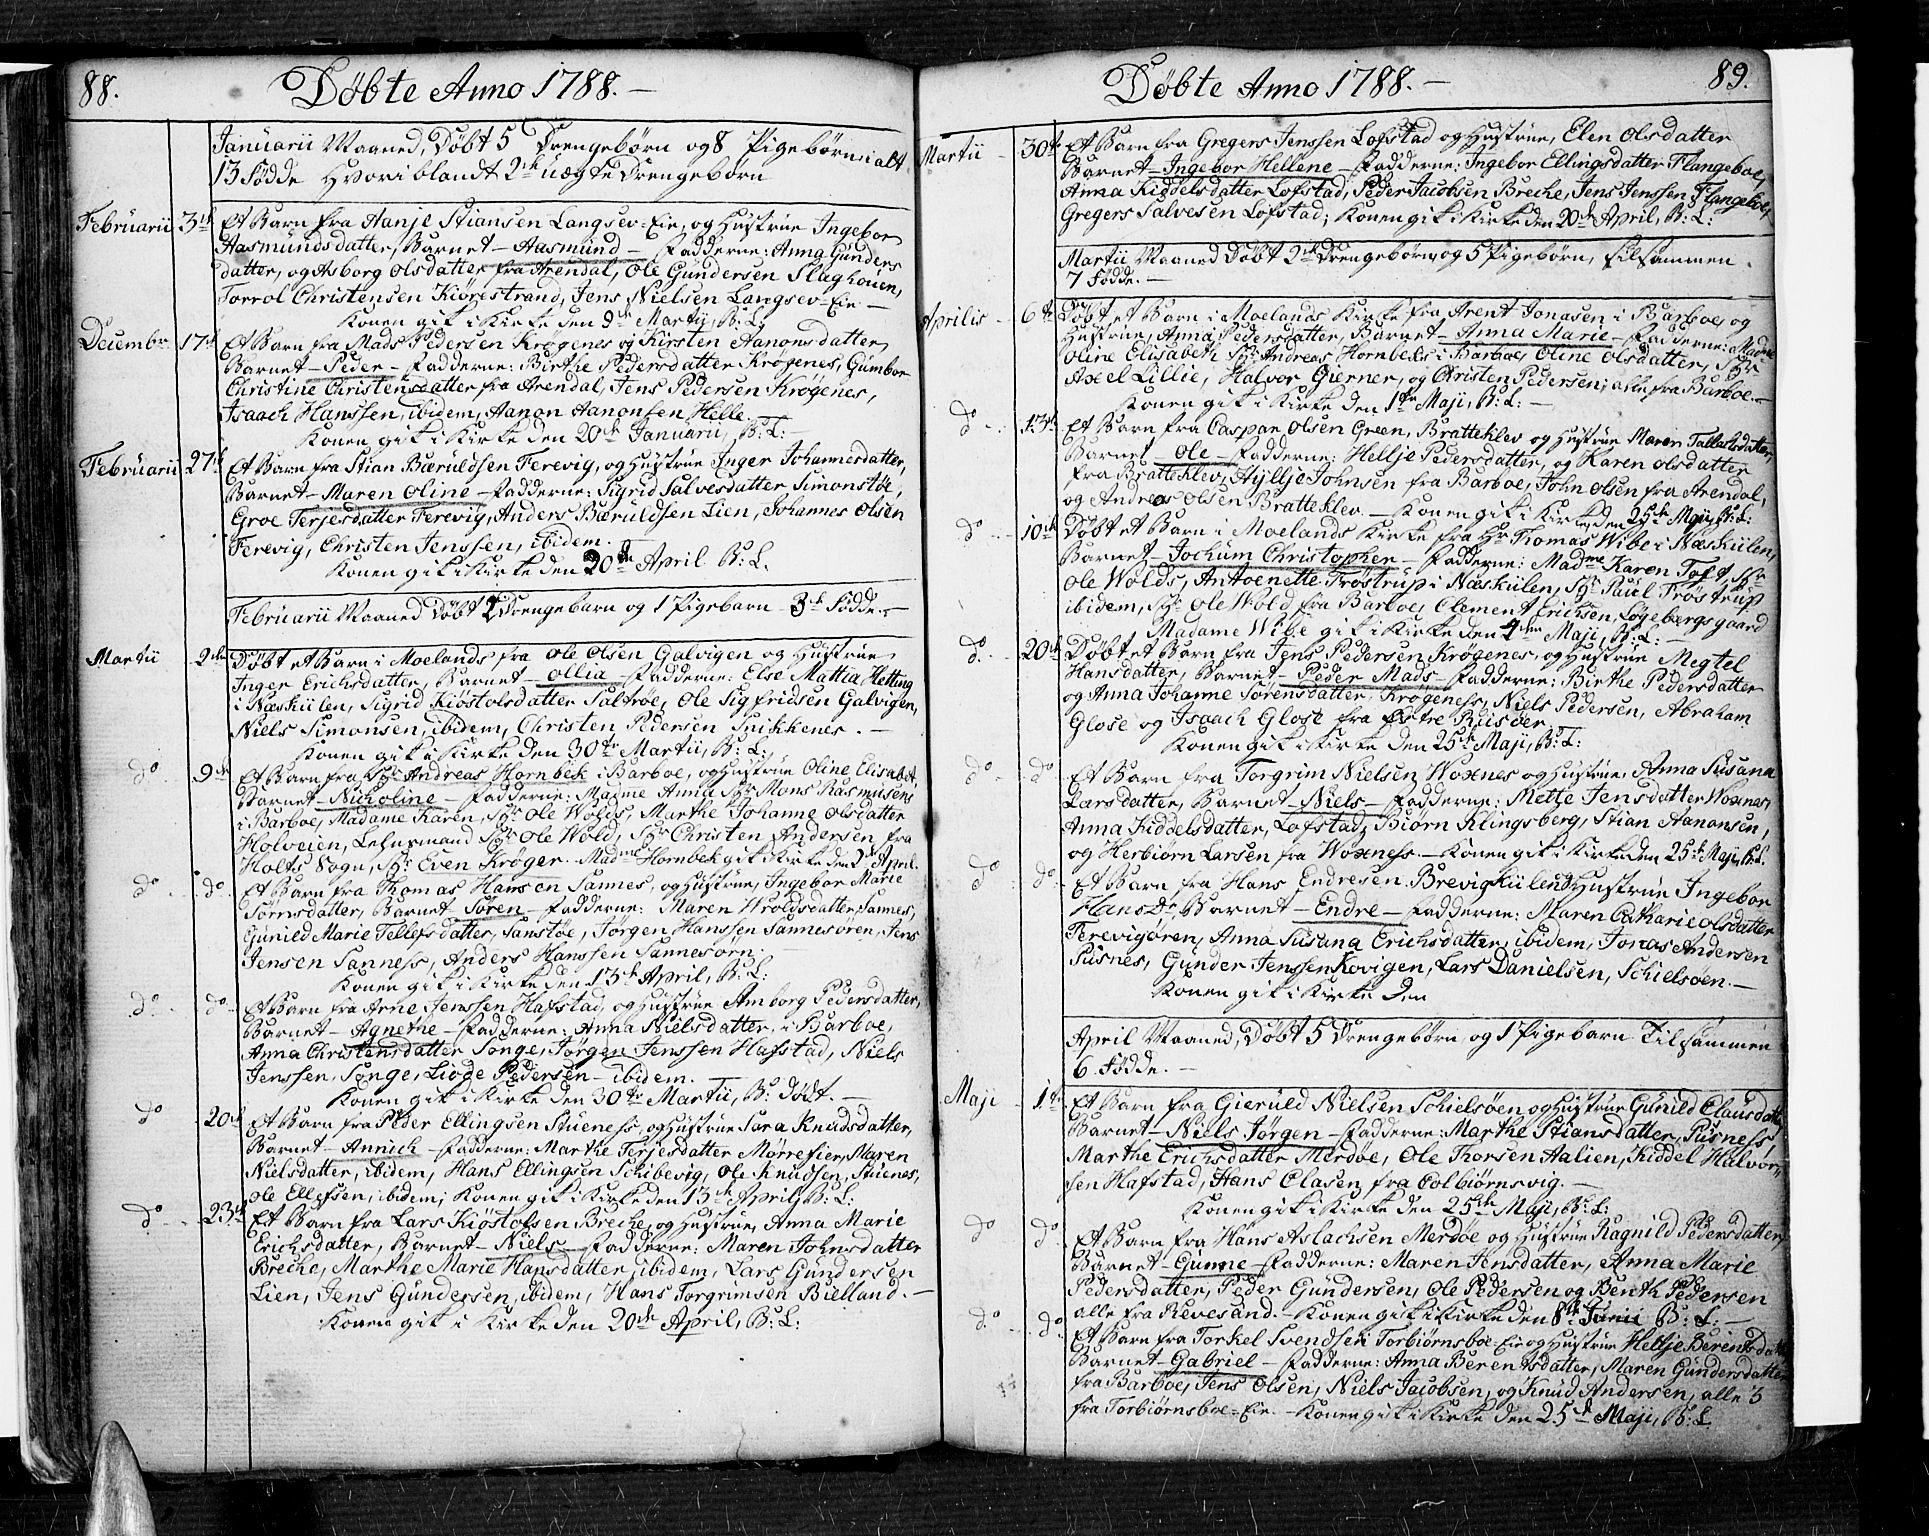 88.
Döbte Anno 1788. —
Januarii Maaned, Döbt 5 Drengebörn og 8 Pigebörn i alt
13 Födde hvoriblandt 2de uægte Drengebörn
Februarii 3die Et Barn fra Aanje Stiansen Langsev-Eie, og Hustrue Ingebor
Aasmundsdatter, Barnet — Aasmund — Fadderne: Anna Gunders
datter, og Asborg Olsdatter fra Arendal, Ole Gundersen Slaghouen,
Torrol Christensen Kiörestrand, Jens Nielsen Langsev-Eie —
Konen gik i Kirke den 9de Martij, B: L:
Decembr. 17de Et Barn fra Mads Pedersen Krøgenes og Kirsten Aanonsdatter
Barnet — Peder — Fadderne: Birthe Pedersdatter Krøgenes, Gumbor
Christine Christensdatter fra Arendal, Jens Pedersen Krøgenes,
Isaach Hanssen, ibidem, Aanon Aanonsen Helle.
Konen gik i Kirke den 20de Januarii, B: L: —
Februarii 27de Et Barn fra Stian Bæruldsen Ferevig, og Hustrue Inger Johannesdatter,
Barnet — Maren Oline — Fadderne: Sigrid Salvesdatter Simonstøe,
Groe Terjesdatter Ferevig, Anders Bæruldsen Lien, Johannes Olsen
Ferevig, Christen Jenssen, ibidem.
Konen gik i Kirke den 20de April B: L.
Februarii Maaned Döbt 2 Drengebarn og 1 Pigebarn — 3de Födde. —
Martii 2den Döbt et Barn i Moelands fra Ole Olsen Galvigen og Hustrue
Inger Erichsdatter, Barnet — Ollia — Fadderne: Else Mattia Hetting
i Næskiilen, Sigrid Kiöstolsdatter Saltröe, Ole Sigfridsen Galvigen,
Niels Simonsen, ibidem, Christen Pedersen Snikkenes. —
Konen gik i Kirke den 30te Martii, B: L:
do 9de Et Barn fra Sr. Andreas Hornbek i Barboe, og Hustrue Oline Elisabet,
Barnet — Nicholine — Fadderne: Madme Anna Sr. Mons Rasmusens
i Barboe, Madame Karen, Sr. Ole Wolds, Marthe Johanne Olsdatter
Holveien, Lehnsmand Sr. Ole Wold, Sr. Christen Andersen, fra
Holts Sogn, Sr. Even Krøger. Madme Hornbek gik i Kirke den 2de April.
do do Et Barn fra Thomas Hansen Sannes, og Hustrue, Ingebor Marie
Sörnsdatter, Barnet Sören — Fadderne: Maren Wroldsdatter, Sannes,
Gunild Marie Tellefsdatter, Samstöe, Jørgen Hanssen Sannesören, Jens
Jensen Sanness, Anders Hanssen Sannesörn.
Konen gik i Kirke den 13de April, B: L:
do do Et Barn fra Arne Jenssen Hafstad, og Hustrue Amborg Pedersdatter,
Barnet — Agnethe — Fadderne: Anna Nielsdatter, i Barboe,
Anna Christensdatter Songe, Jørgen Jenssen Hafstad, Niels
Jenssen, Songe, Liøde Pedersen — ibidem.
Konen gik i Kirke den 30te Martii, B: Dödt. —
do 20de Et Barn fra Peder Ellingsen Stueness, og Hustrue Sara Knudsdatter,
Barnet — Annich — Fadderne: Marthe Terjesdatter Mørrefier, Maren
Nielsdatter, ibidem, Hans Ellingsen Schibevig, Ole Knudsen, Stuenes,
Ole Ellefsen, ibidem; Konen gik i Kirke den 13de April, B: L:
do 23de Et Barn fra Lars Kiöstolsen Breche, og Hustrue, Anna Marie
Erichsdatter, Barnet — Niels — Fadderne: Maren Johnsdatter
Breche, Marthe Marie Hansdatter, ibidem, Lars Gundersen
Lien, Jens Gundersen, ibidem, Hans Torgrimsen Bielland. —
Konen gik i Kirke den 20de April, B: L:
89.
Döbte Anno 1788. —
Martii 30te Et Barn fra Gregers Jenssen Lofstad og Hustrue, Elen Olsdatter
Barnet — Ingebor Hellene — Fadderne: Ingebor Ellingsdatter Flangeboe,
Anna Kiddelsdatter Lofstad, Peder Jacobsen Breche, Jens Jenssen Flangeboe,
Gregers Salvesen Lofstad; Konen gik i Kirke den 20de April, B: L:
Martii Maaned Döbt 2de Drengebörn, og 5 Pigebörn, tilsammen
7 Födde. —
Aprilis 6te Döbt et Barn i Moelands Kirke fra Arent Jonasen i Barboe og
Hustrue, Anna Pedersdatter, Barnet — Anna Marie — Fadderne: Madme
Oline Elisabeth Sr. Andreas Hornbeks i Barboe, Oline Olsdatter, Sr.
Axel Lillie, Halvor Gierner, og Christen Pedersen; alle fra Barboe. —
Konen gik i Kirke den 1ste Maji, B: L: —
do 13de Et Barn fra Caspar Olsen Green, Bratteklev og Hustrue Maren Tallaksdatter,
Barnet — Ole — Fadderne: Hellje Pedersdatter, og Karen Olsdatter
fra Bratteklev, Hyllje Johnsen fra Barboe, John Olsen fra Arendal,
og Andreas Olsen Bratteklev — Konen gik i Kirke den 25de Maji, B: L:
do 10de Döbt et Barn i Moelands Kirke fra Hr. Thomas Wibe i Næskiilen,
Barnet — Jochum Christopher — Fadderne: Madme Karen Toft, Sr.
Ole Wolds, Antoenette Frøstrup i Næskiilen, Sr. Paul Frøstrup
ibidem, Sr. Ole Wold fra Barboe, Clement Erichsen, Løgebergsgaard
Madame Wibe gik i Kirke den 4den Maji, B: L: —
do 20de Döbt et Barn fra Jens Pedersen Krøgenes, og Hustrue Megtel
Hansdatter, Barnet — Peder Mads — Fadderne: Birthe Pedersdatter
og Anna Johanne Sørensdatter, Krøgeness, Niels Pedersen, Abraham
Glose og Isaach Glose fra Østre Riisöer.
Konen gik i Kirke den 25de Maji, B: L:
do do Et Barn fra Torgrim Nielsen Woxnes og Hustrue, Anna Susana
Larsdatter, Barnet — Niels — Fadderne: Mette Jensdatter Woxnes,
Anna Kiddelsdatter, Lofstad, Biørn Klingsberg, Stian Aanonsen,
og Herbiørn Larsen fra Woxness. — Konen gik i Kirke den 25de Maji, B: L.
do do Et Barn fra Hans Endresen Brevigkiilen og Hustrue Ingebor
Hans Dr. Barnet — Endre — Fadderne: Maren Catharie Olsdatter
Ferevigören, Anna Susana Erichsdatter, ibidem, Jonas Andersen
Pusnes, Gunder Jenssen Kovigen, Lars Danielsen, Schielsöen. —
Konen gik i Kirke den
April Maaned, Döbt 5 Drengebörn, og 1 Pigebarn Tilsammen
6 Födde. —
Maji 1ste Et Barn fra Gieruld Nielsen Schielsöen og Hustrue Gunild Clausdatter
Barnet — Niels Jørgen — Fadderne: Marthe Stiansdatter, Pusness
Marthe Erichsdatter Merdöe, Ole Thorsen Aalien, Kiddel Halvor-
sen Hafstad, Hans Clasen fra Colbiørnsvig. —
Konen gik i Kirke den 25de Maji, B: L:
do do Et Barn fra Hans Aslachsen Merdöe og Hustrue Ragnild Pedersdatter,
Barnet — Gunne — Fadderne: Maren Jensdatter, Anna Marie
Pedersdatter, Peder Gundersen, Ole Pedersen og Benth Pedersen
alle fra Revesand. — Konen gik i Kirke den 8de Junii B: L: —
do do Et Barn fra Torkel Svendsen Torbiørnsboe-Eie og Hustrue Hellje Berentsdatter
Barnet — Gabriel — Fadderne: Anna Berentsdatter, Maren Gundersdatter
fra Barboe, Jens Olsen, Niels Jacobsen, og Knud Andersen, alle 3
fra Torbiørnsboe-Eie. — Konen gik i Kirke den 25de Maji, B: L